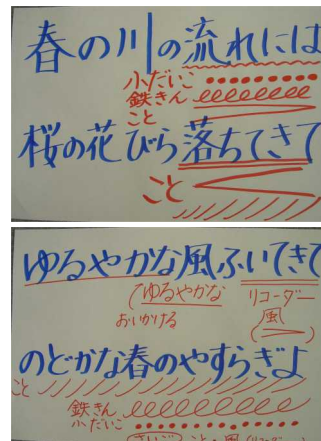 春の川の流れには
小だいこ
鉄きん
こと
桜の花びら落ちてきて
こと
ゆるやかな風ふいてきて
(ゆるやかな
おいかける
リコーダー
風
のどかな春のやすらぎよ
こと
鉄きん
小だいこ